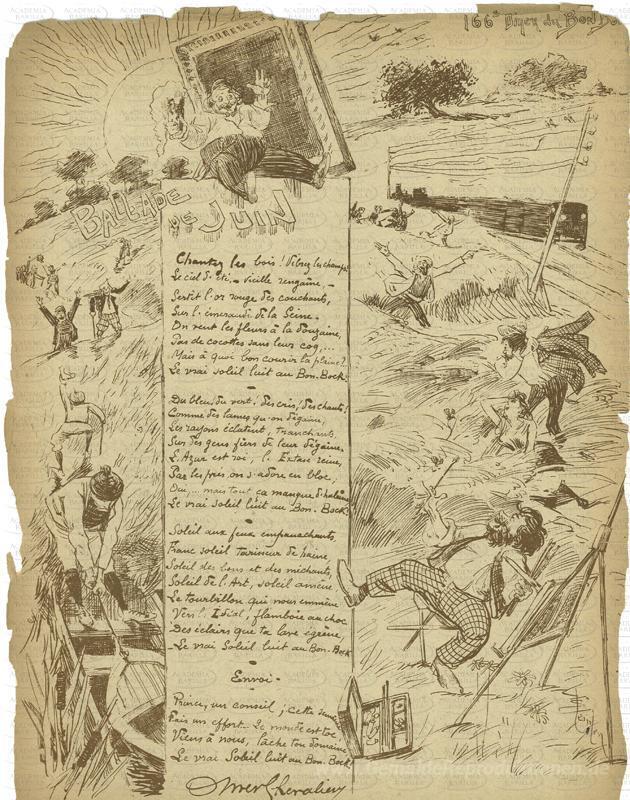 166e Diner du Bon Bo
BALLADE
DE JUIN
Chantez les bois! Vibrez les champs!
Le ciel d'été, - vieille rengaine, -
Sertit l'or rouge des couchants,
Sur l'émeraude de la Seine.
On vend les fleurs à la douzaine,
Pas de cocottes sans leur coq...
Mais à quoi bon courir la plaine?
Le vrai soleil luit au Bon-Bock.
Du bleu, du vert! des cris, des chants!
Comme des lames qu'on dégaine,
Les rayons éclatent, tranchants,
Sur des gens fiers de leur dégaine.
L'Azur est roi, l'Extase reine,
Par les prés on s'adore en bloc,
Oui,... mais tout ça manque d'haleine
Le vrai soleil luit au Bon-Bock.
Soleil aux feux empanachants,
Franc soleil tarisseur de haine,
Soleil des bons et des méchants,
Soleil de l'Art, soleil amène
Le tourbillon qui nous emmène
Vers l'Idéal, flamboie au choc
Des éclairs que ta lave égrène,
Le vrai Soleil luit au Bon-Bock
Envoi-
Prince, un conseil; cette
Fais un effort. Le monde est toc
Viens à nous, lâche ton domaine
Le vrai Soleil luit au Bon-Bock.
Chevalier